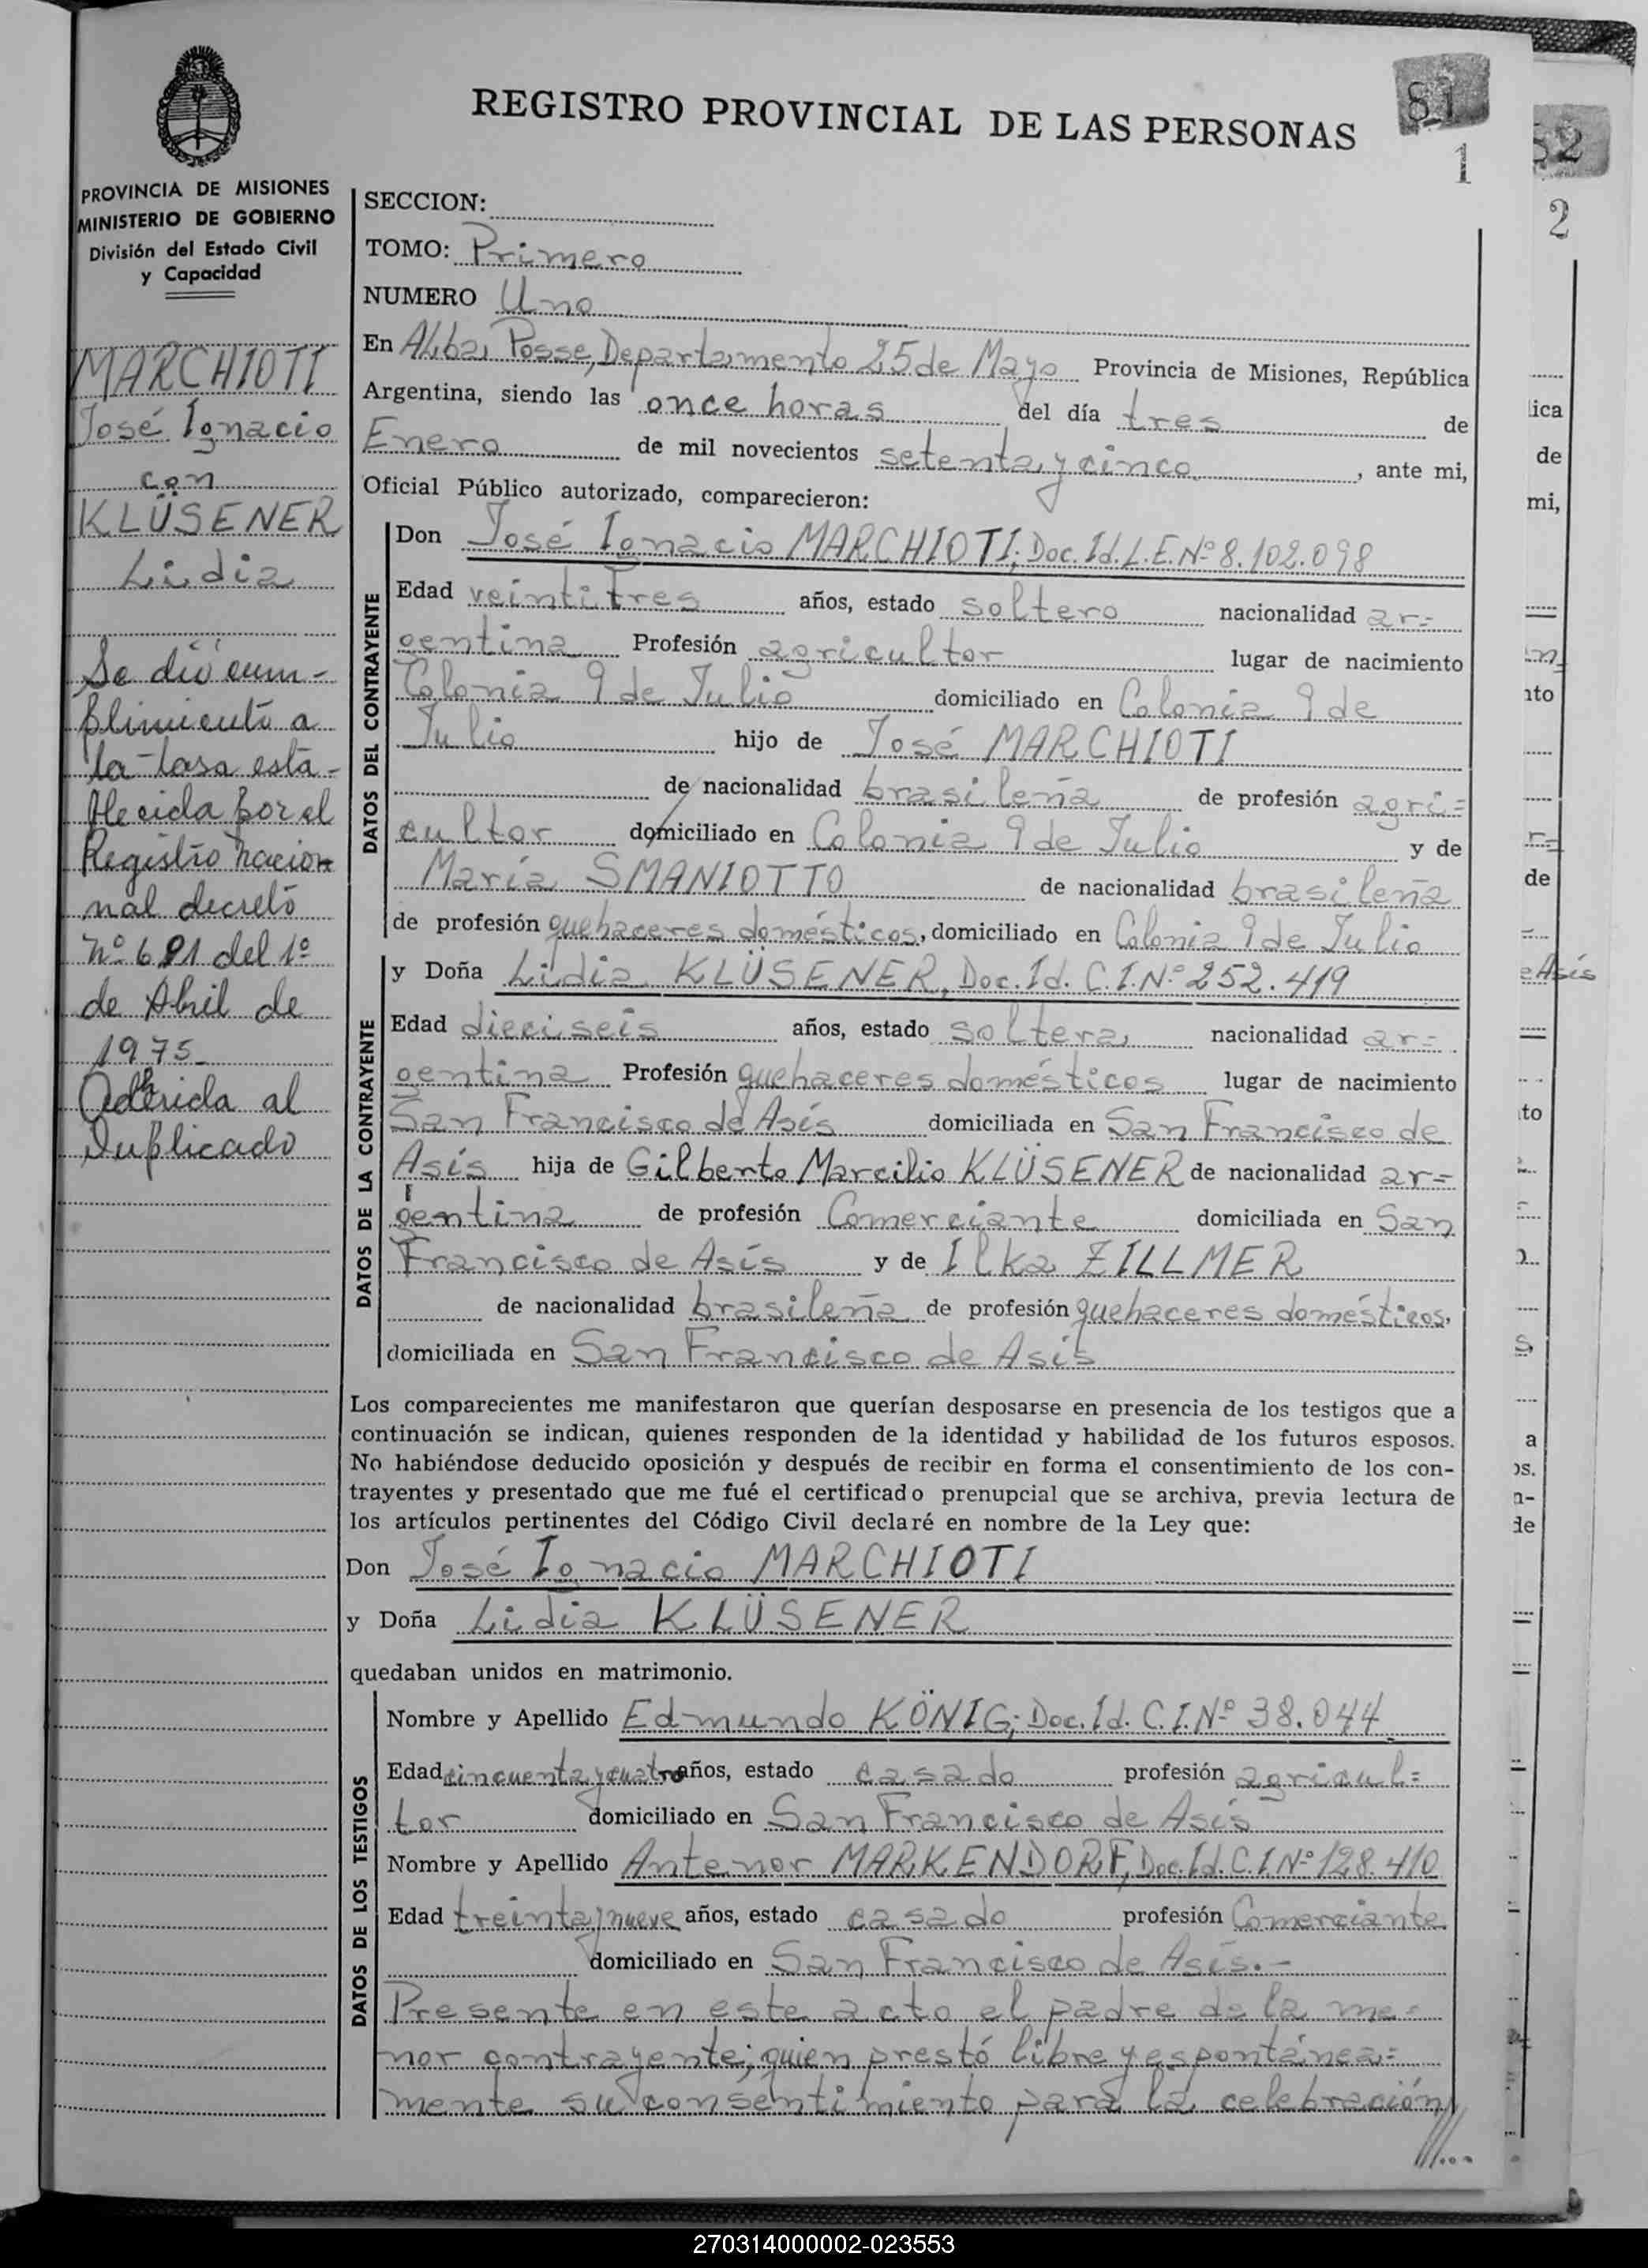 REGISTRO PROVINCIAL DE LAS PERSONAS
81
1
PROVINCIA DE MISIONES
MINISTERIO DE GOBIERNO
División del Estado Civil
y Capacidad
MARCHIOTI
José Ignacio
con
KLÜSENER
Lidia
Se dió cum-
plimiento a
la tasa esta-
blecida por el
Registro Nacio
nal decreto
Nº 691 del 1º
de Abril de
1975
Adherida al
Duplicado
SECCION:
TOMO: Primero
NUMERO Uno
En Alba Posse, Departamento 25 de Mayo Provincia de Misiones, República
Argentina, siendo las once horas del día tres de
Enero de mil novecientos setenta y cinco, ante mi,
Oficial Público autorizado, comparecieron:
DATOS DEL CONTRAYENTE
Don José Ignacio MARCHIOTI; Doc. Id. L.E. Nº 8.102.098
Edad veintitres años, estado soltero nacionalidad ar=
gentina Profesión agricultor lugar de nacimiento
Colonia 9 de Julio domiciliado en Colonia 9 de
Julio hijo de José MARCHIOTI
de nacionalidad brasileña de profesión agri=
cultor domiciliado en Colonia 9 de Julio y de
María SMANIOTTO de nacionalidad brasileña
de profesión quehaceres domésticos, domiciliado en Colonia 9 de Julio
DATOS DE LA CONTRAYENTE
y Doña Lidia KLÜSENER, Doc. Id. C.I. Nº 252.419
Edad dieciseis años, estado soltera, nacionalidad ar=
gentina Profesión quehaceres domésticos lugar de nacimiento
San Francisco de Asís domiciliada en San Francisco de
Asís hija de Gilberto Marcilio KLÜSENER de nacionalidad ar=
gentina de profesión Comerciante domiciliada en San
Francisco de Asís y de Ilka ZILLMER
de nacionalidad brasileña de profesión quehaceres domésticos,
domiciliada en San Francisco de Asís
Los comparecientes me manifestaron que querían desposarse en presencia de los testigos que a
continuación se indican, quienes responden de la identidad y habilidad de los futuros esposos.
No habiéndose deducido oposición y después de recibir en forma el consentimiento de los con-
trayentes y presentado que me fué el certificado prenupcial que se archiva, previa lectura de
los artículos pertinentes del Código Civil declaré en nombre de la Ley que:
Don José Ignacio MARCHIOTI
y Doña Lidia KLÜSENER
quedaban unidos en matrimonio.
DATOS DE LOS TESTIGOS
Nombre y Apellido Edmundo KÖNIG; Doc. Id. C.I. Nº 38.044
Edad cincuenta y cuatro años, estado casado profesión agricul=
tor domiciliado en San Francisco de Asís
Nombre y Apellido Antenor MARKENDORF, Doc. Id. C.I. Nº 128.410
Edad treinta y nueve años, estado casado profesión Comerciante
domiciliado en San Francisco de Asís.-
Presente en este acto el padre de la me=
nor contrayente; quien prestó libre y espontánea=
mente su consentimiento para la celebración
///...
2
270314000002-023553